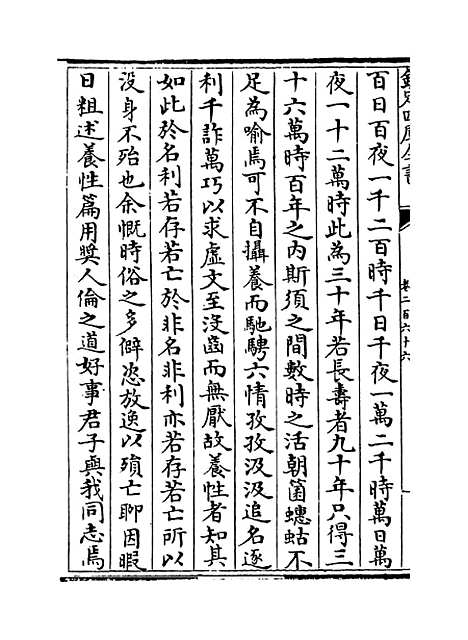 欽定四庫全書
卷二百六十六
百日百夜一千二百時千日千夜一萬二千時萬日萬
夜一十二萬時此為三十年若長壽者九十年只得三
十六萬時百年之内斯須之間數時之活朝菌蟪蛄不
足為喻焉可不自攝養而馳騁六情孜孜汲汲追名逐
利千詐萬巧以求虛文至沒齒而無厭故養性者知其
如此於名利若存若亡於非名非利亦若存若亡所以
沒身不殆也余慨時俗之多僻恣放逸以殞亡聊因暇
日粗述養性篇用奬人倫之道好事君子與我同志焉